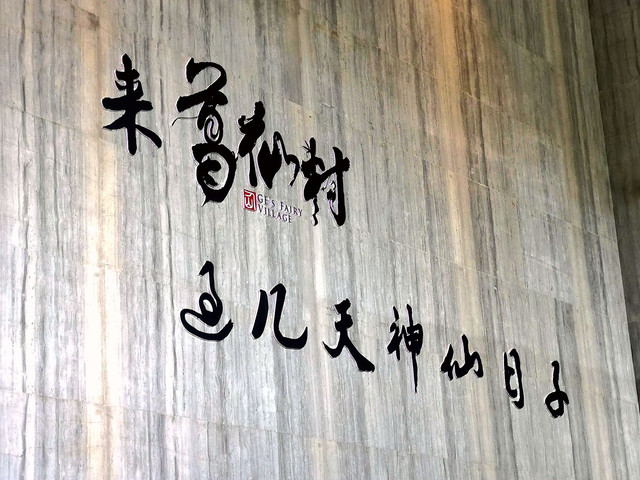 来葛仙村
GE'S FAIRY
VILLAGE
过几天神仙日子